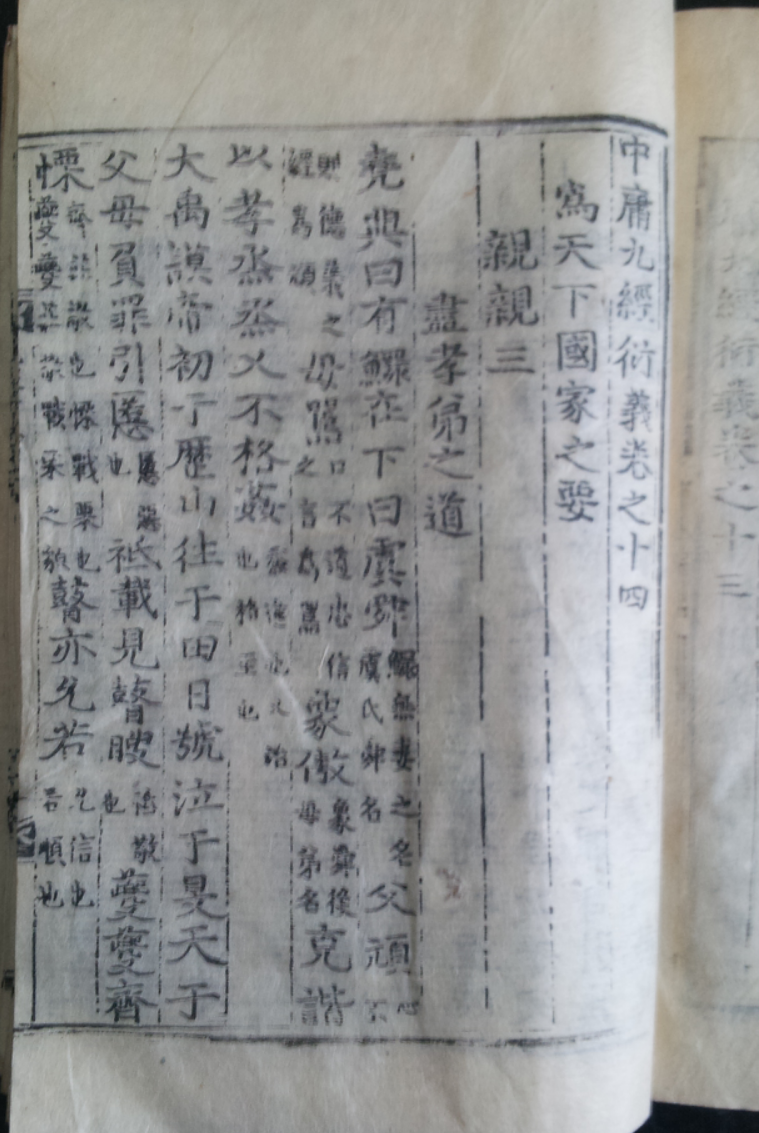 中庸九經衍義卷之十四
爲天下國家之要
親親三
盡孝弟之道
堯典曰有鰥在下曰虞舜鰥無妻之名虞氏舜名父頑心不
則德義之經爲頑母嚚口不道忠信之言爲嚚象傲象舜後母弟名克諧
以孝烝烝乂不格姦烝進也乂治也格至也
大禹謨帝初于歷山往于田日號泣于旻天于
父母負罪引慝慝惡也祗載見瞽瞍也敬夔夔齊
慄齊莊敬也慄戰栗也夔夔莊敬戰栗之瞽亦允若允信也若順也
經衍義卷之十三